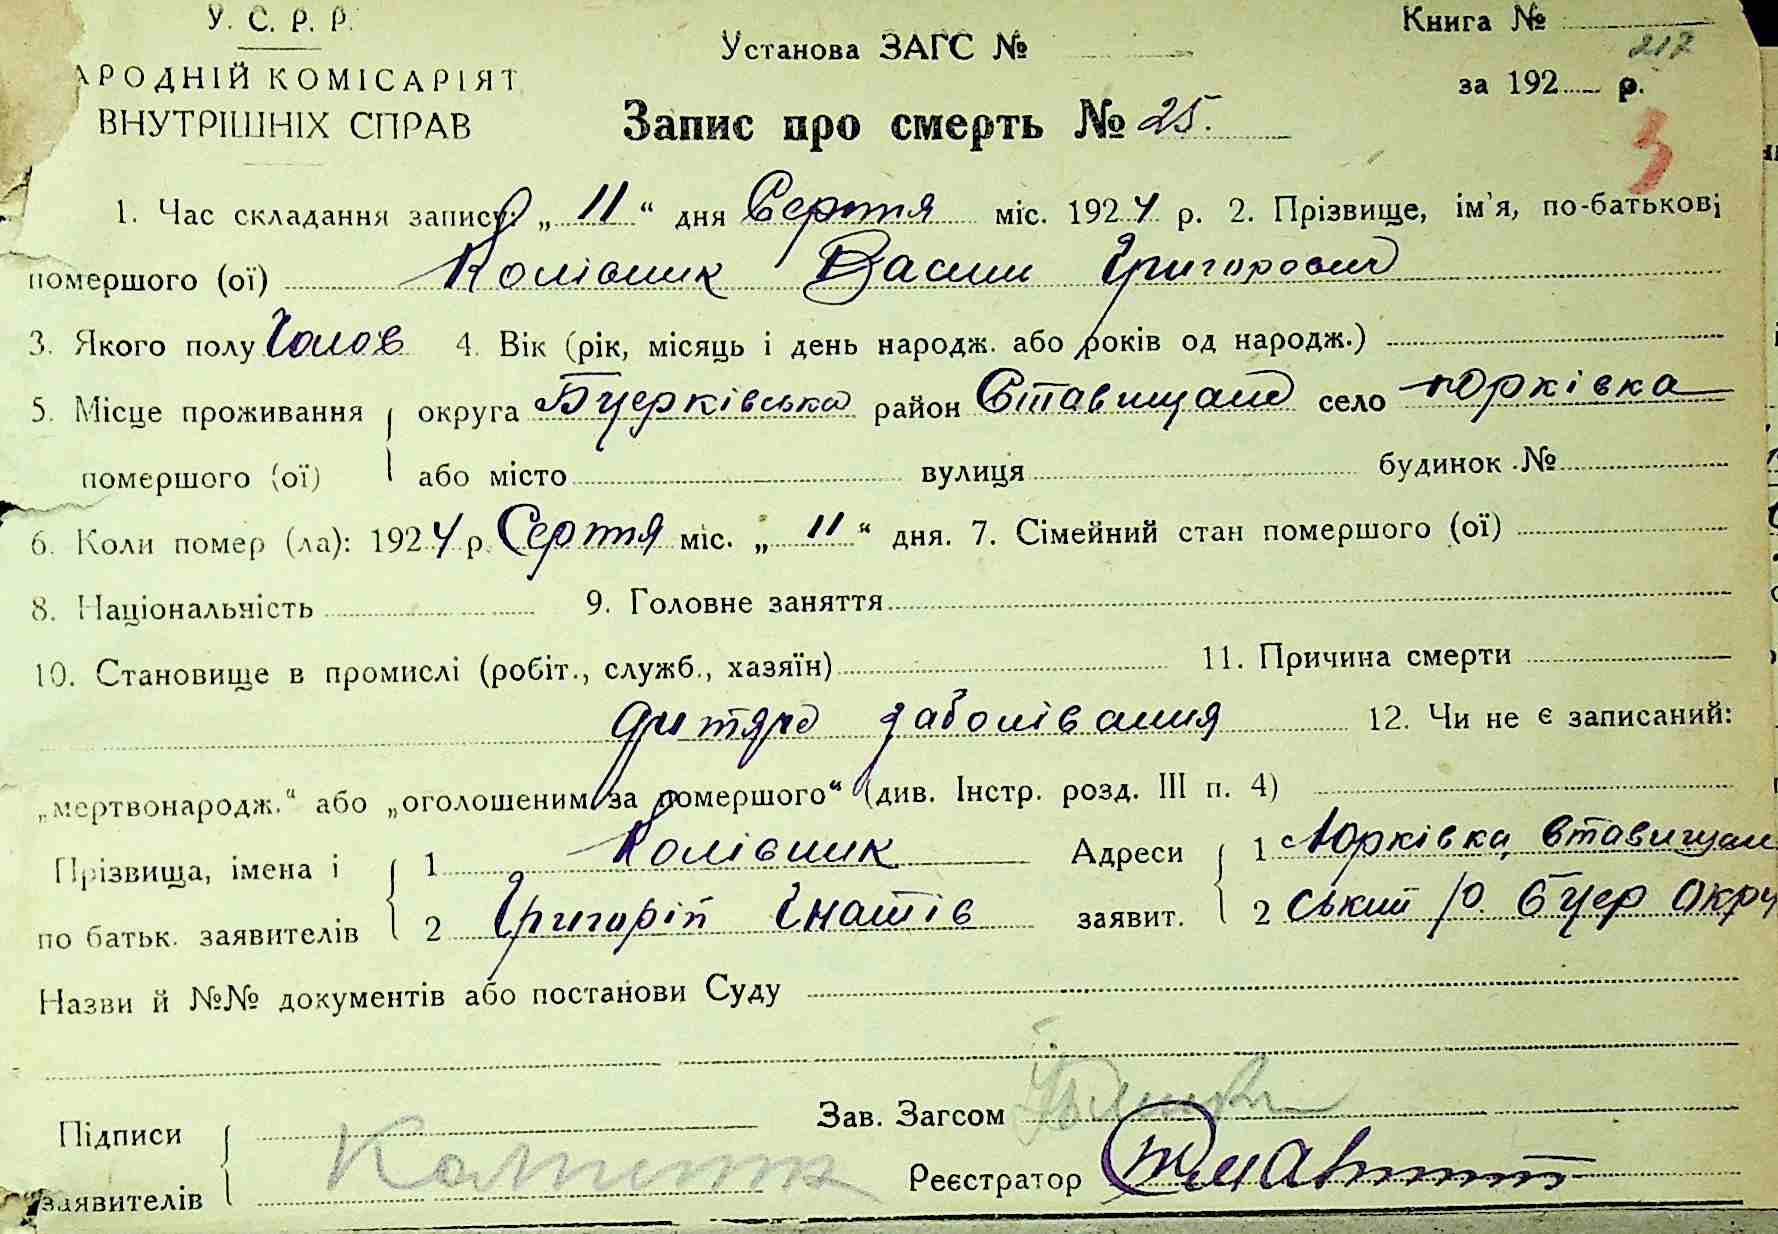 У. С. Р. Р.
АРОДНІЙ КОМІСАРІЯТ
ВНУТРІШНІХ СПРАВ
Установа ЗАГС №
Запис про смерть № 25.
Книга №
217
за 192 р.
3
1. Час складання запису: „ 11 “ дня Серпня міс. 1924 р. 2. Прізвище, ім'я, по-батькові
помершого (ої) Колівник Васили Григорович
3. Якого полу Чолов 4. Вік (рік, місяць і день народж. або років од народж.)
5. Місце проживання помершого (ої) округа Бцерківська район Ставищан село Юрківка
або місто вулиця будинок №
6. Коли помер (ла): 1924 р. Серпня міс. „ 11 “ дня. 7. Сімейний стан помершого (ої)
8. Національність 9. Головне заняття
10. Становище в промислі (робіт., служб., хазяїн) 11. Причина смерти
заболівання 12. Чи не є записаний:
„мертвонародж.“ або „оголошеним за помершого“ (див. Інстр. розд. III п. 4)
Прізвища, імена і по батьк. заявителів 1 Колівник Адреси заявит. 1 Юрківка, Ставищан
2 Григорій Гнатів 2 ський р. Бцер Окру
Назви й №№ документів або постанови Суду
Підписи заявителів
Зав. Загсом
Реєстратор